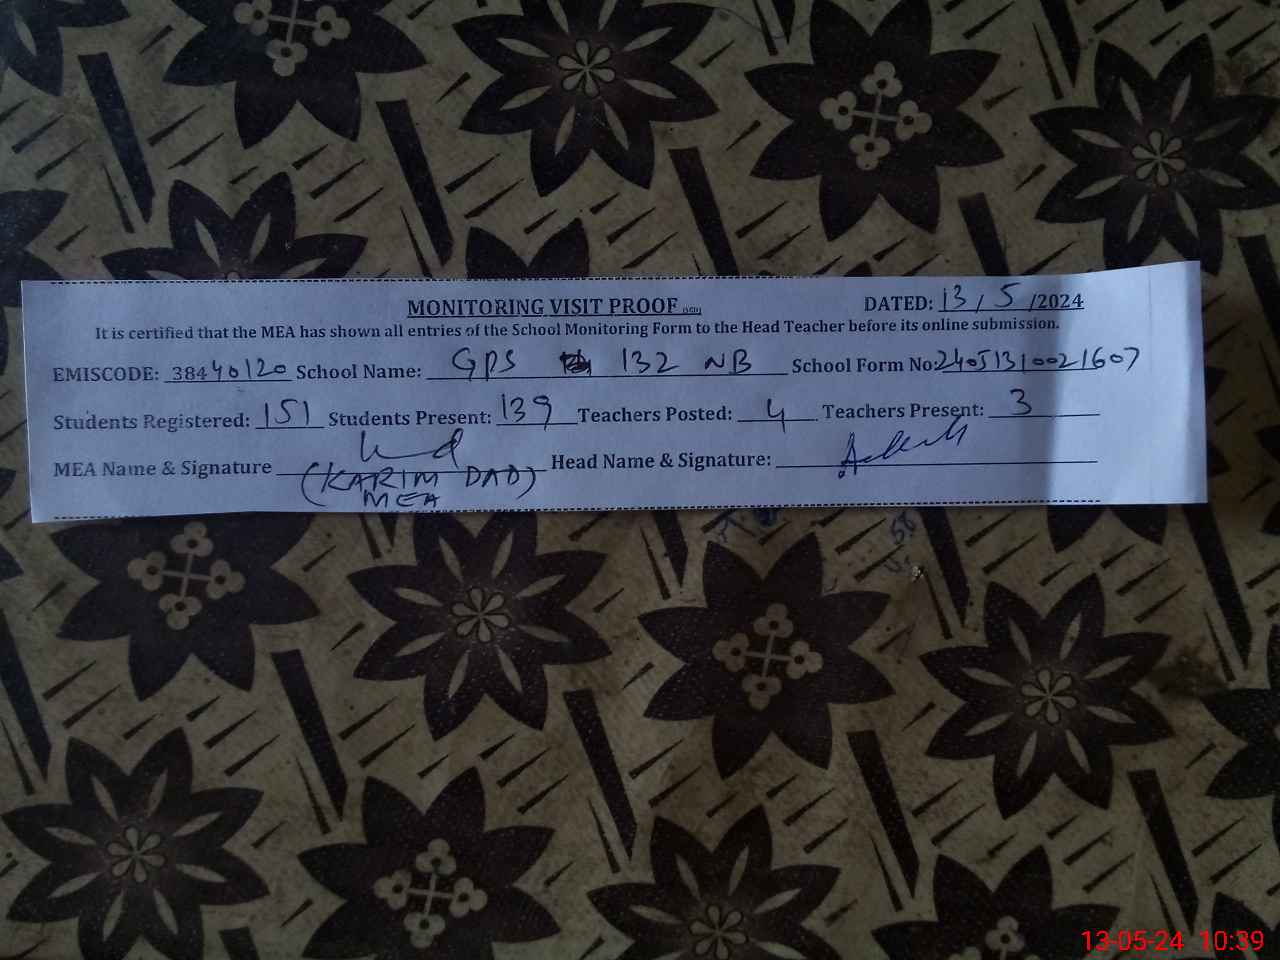 MONITORING VISIT PROOF
DATED: 13/5/2024
It is certified that the MEA has shown all entries of the School Monitoring Form to the Head Teacher before its online submission.
EMISCODE: 38440120 School Name: GPS 132 NB School Form No: 24051310021607
Students Registered: 151 Students Present: 139 Teachers Posted: 4 Teachers Present: 3
MEA Name & Signature (KARIM DAD) Head Name & Signature:
MEA
13-05-24 10:39